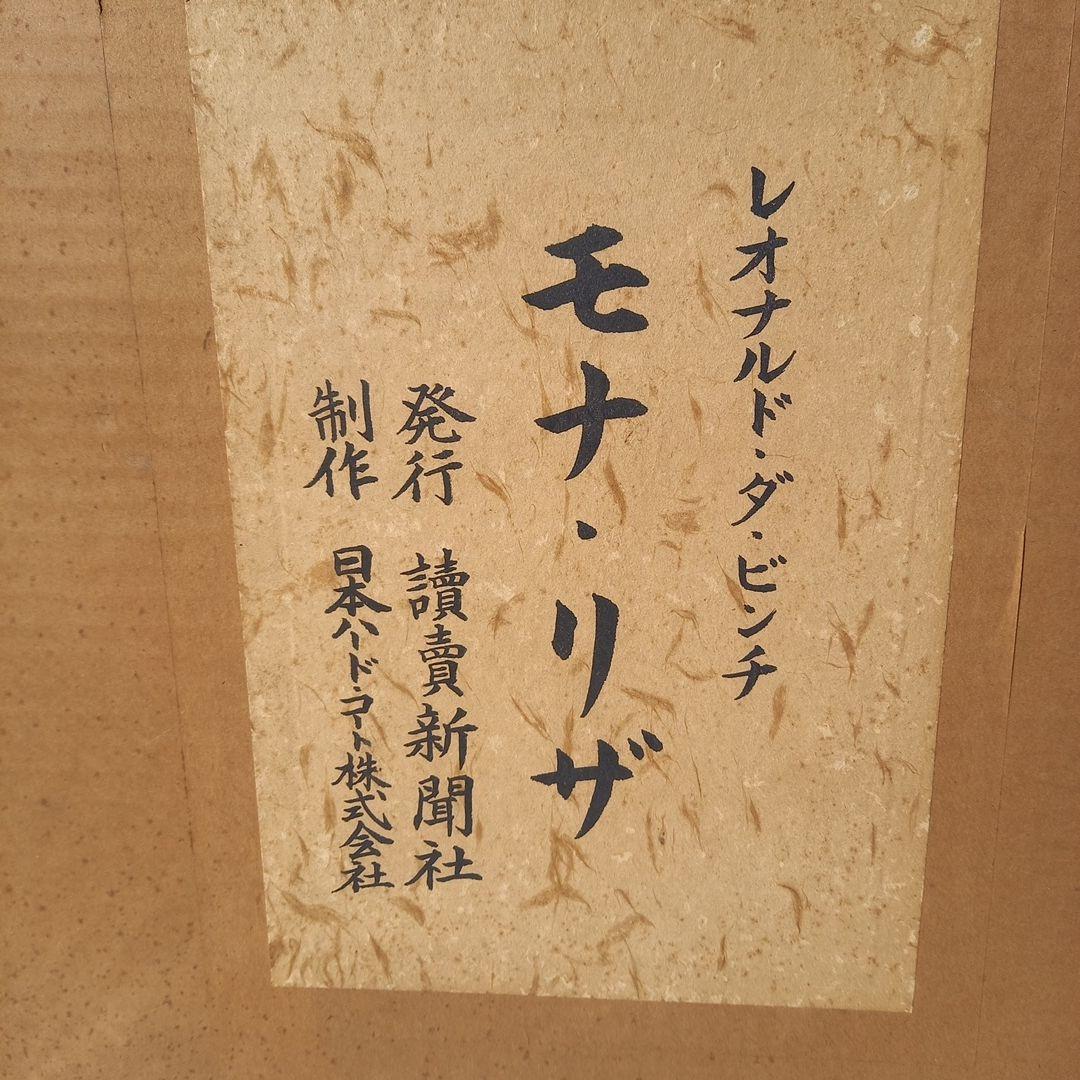 レオナルド・ダ・ビンチ
モナ・リザ
発行 讀賣新聞社
制作 日本ハード・コート株式会社